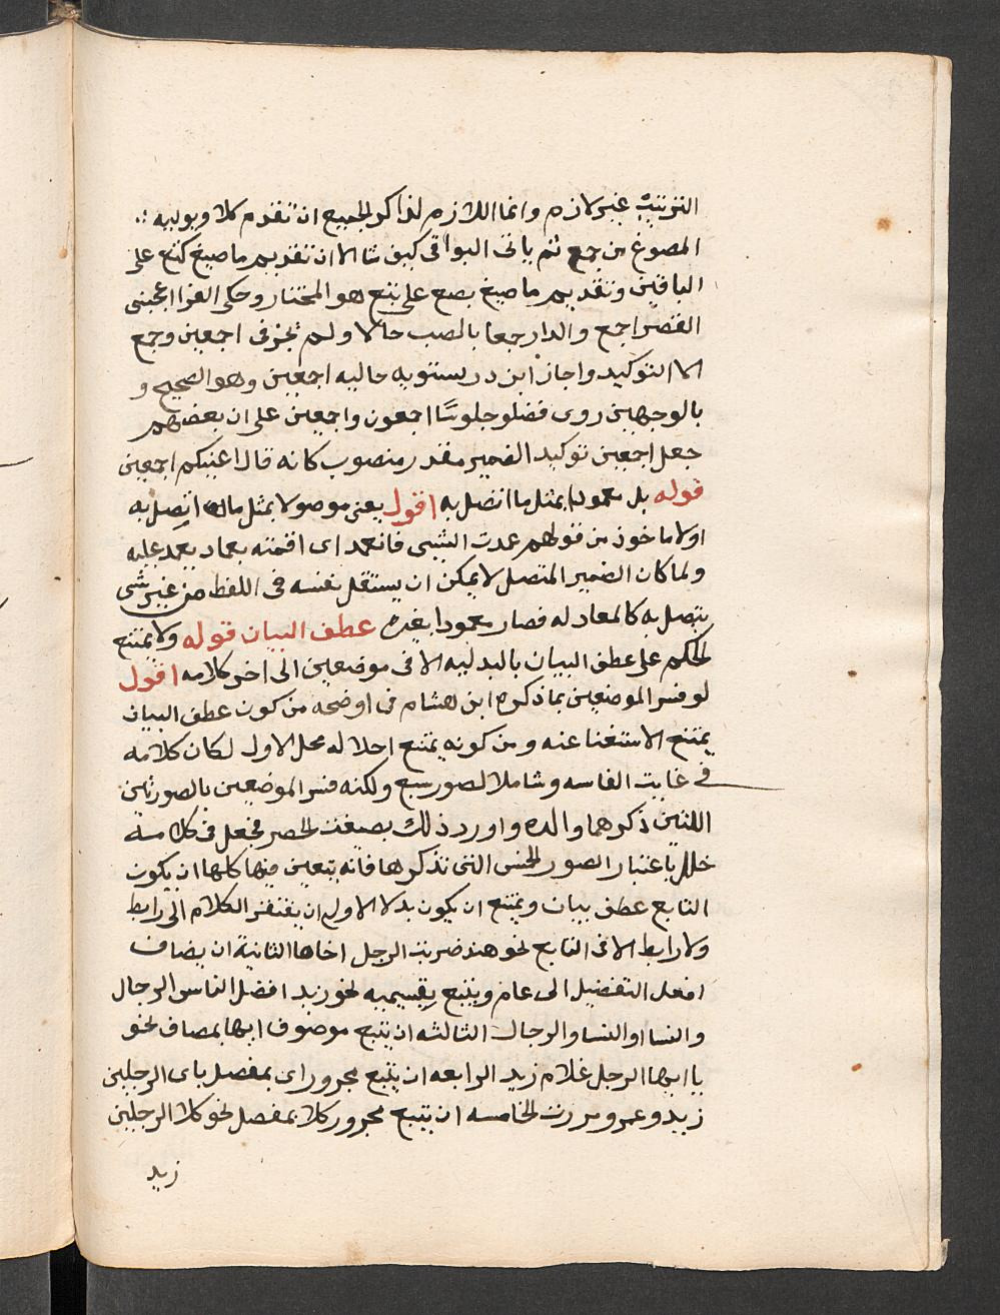 الترتيب غير لازم وانما اللازم لذاكر الجميع ان تقدم كلا ويوليه
المصوغ من جمع ثم ياتى البواقى كيف شا الا ان تقديم ما صيغ كتع على
الباقين وتقديم ما صيغ بصع على بتع هو المختار وحكى الفرا اعجبنى
القصر اجمع والدار جمعا بالنصب حالا ولم يجز فى اجمعين وجمع
الا التوكيد واجاز ابن درستويه حاليه اجمعين وهو الصحيح و
بالوجهين روى فصلو جلوسًا اجمعون واجمعين على ان بعضهم
جعل اجمعين توكيد الضمير مقدر منصوب كانه قال اعنيكم اجمعين
قوله بل معمودا بمثل ما اتصل به اقول يعنى موصولا بمثل ما اتصل به
اولا ماخوذ من قولهم عدت الشيى فانعمد اى اقمته بعماد يعمد عليه
ولما كان الضمير المتصل لا يمكن ان يستقل بنفسه فى اللفظ من غير شى
يتصل به كالمعاد له فصار معمودا بغيره عطف البيان قوله ولا يمتنع
الحكم على عطف البيان بالبدليه الا فى موضعين الى اخر كلامه اقول
لو فسر الموضعين بما ذكره ابن هشام فى اوضحه من كون عطف البيان
يمتنع الاستغنا عنه ومن كونه يمتنع احلاله محل الاول لكان كلامه
فى غايت النفاسه وشاملا لصور سبع ولكنه فسر الموضعين بالصورتين
اللتين ذكرهما والده واورد ذلك بصيغت الحصر فجعل فى كلامه
خلل باعتبار الصور الخمس التى نذكرها فانه يتعين فيها كلها ان يكون
التابع عطف بيان ويمتنع ان يكون بدلا الاولى ان يفتقر الكلام الى رابط
ولا رابط الا فى التابع نحو هند ضربت الرجل اخاها الثانية ان يضاف
افعل التفضيل الى عام ويتبع بقسيميه نحو زيد افضل الناس الرجال
والنسا او النسا والرجال الثالثه ان يتبع موصوف ايها بمضاف نحو
يا ايها الرجل غلام زيد الرابعه ان يتبع مجرور اى بمفصل باى الرجلين
زيد وعمرو مررت الخامسه ان يتبع مجرور كلا بمفصل نحو كلا الرجلين
زيد